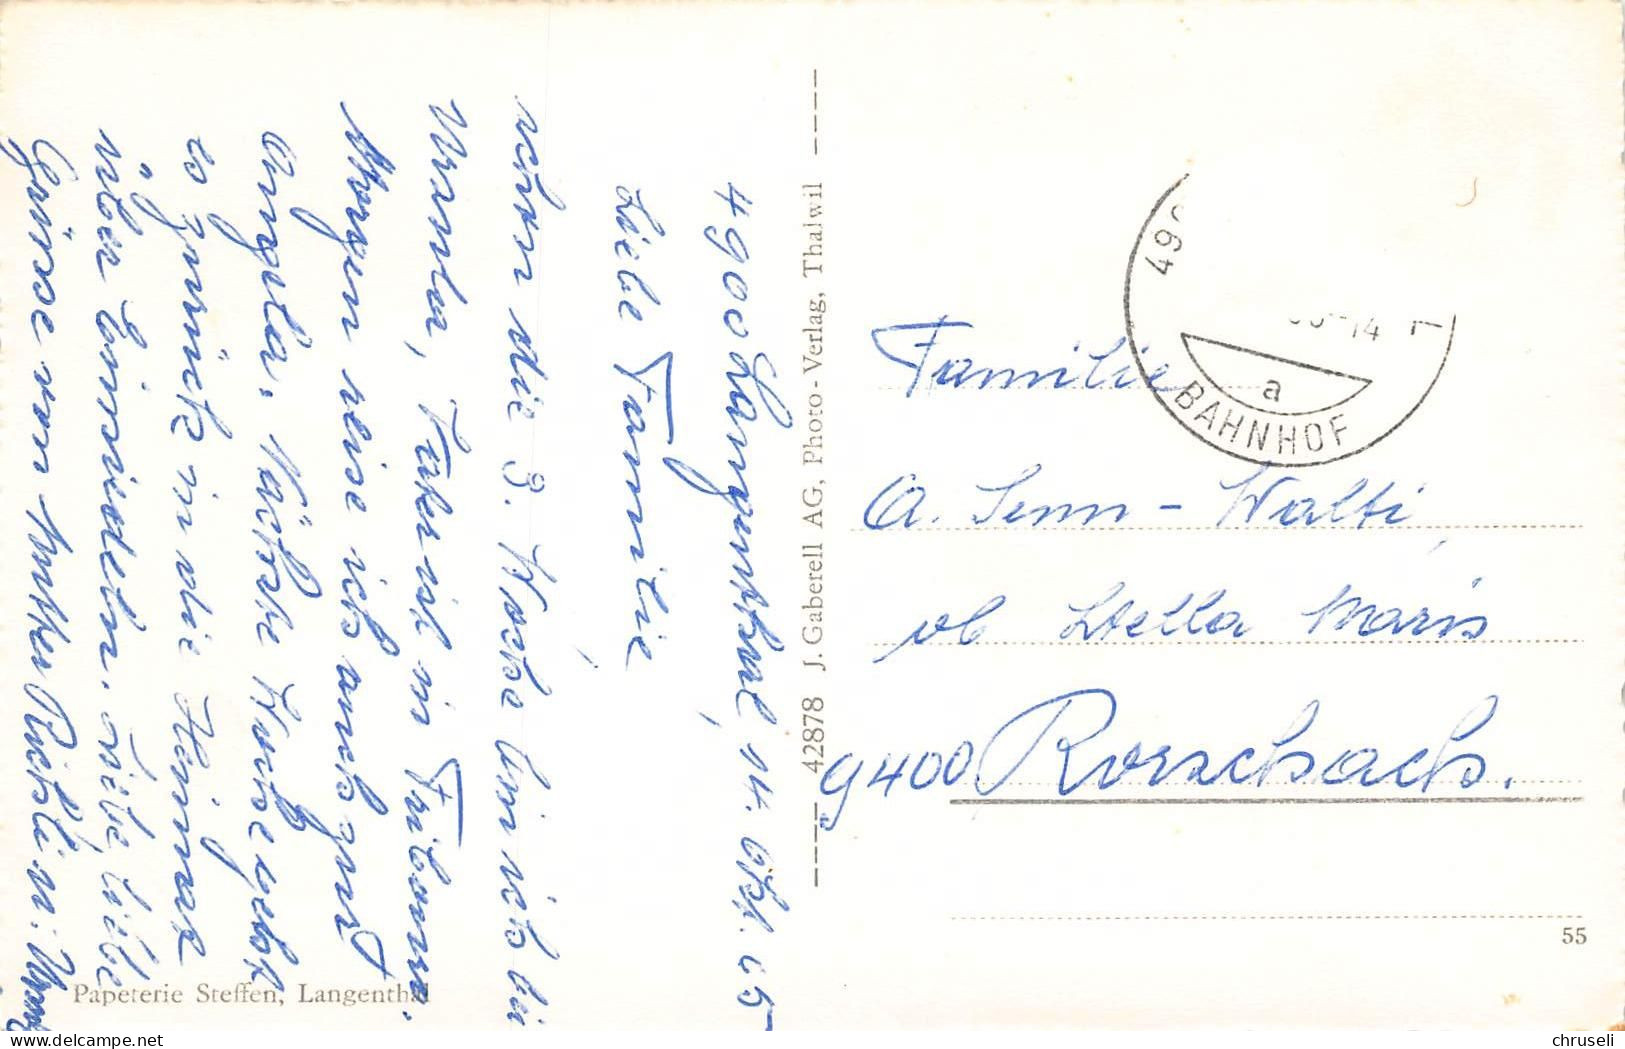 4900 Langenthal, 14. Okt. 65
Liebe Familie,
schon die 3. Woche bin ich bei
Ursula, Fakerist in Fribourg.
Morgen reise ich auch zur
Angela. Nächste Woche geht
es zurück in die Heimat
über Einsiedeln. Liebe, liebe
Grüsse von
Papeterie Steffen, Langenthal
42878 J. Gaberell AG, Photo-Verlag, Thalwil
49
-14
a
BAHNHOF
Familie
A. Senn-Walti
ob Stella Maris
9400 Rorschach.
55
delcampe.net
chruseli